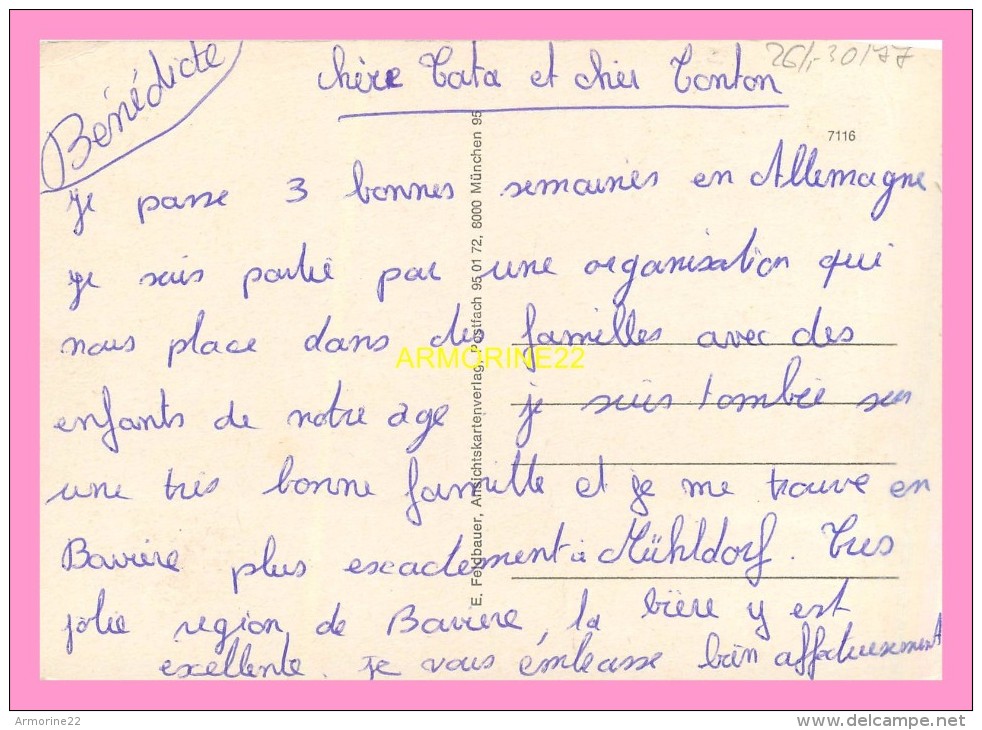 Bénédicte
chère Tata et cher Tonton
7116
je passe 3 bonnes semaines en Allemagne
je suis partie par une organisation qui
nous place dans des familles avec des
enfants de notre age je suis tombée sur
une très bonne famille et je me trouve en
Bavière plus exactement à Mühldorf. Tres
jolie region de Baviere, la bière y est
exellente. je vous embrasse bien affectueusement
E. Feldbauer, Ansichtskartenverlag, Postfach 95 01 72, 8000 München 95
ARMORINE22
Armorine22
www.delcampe.net